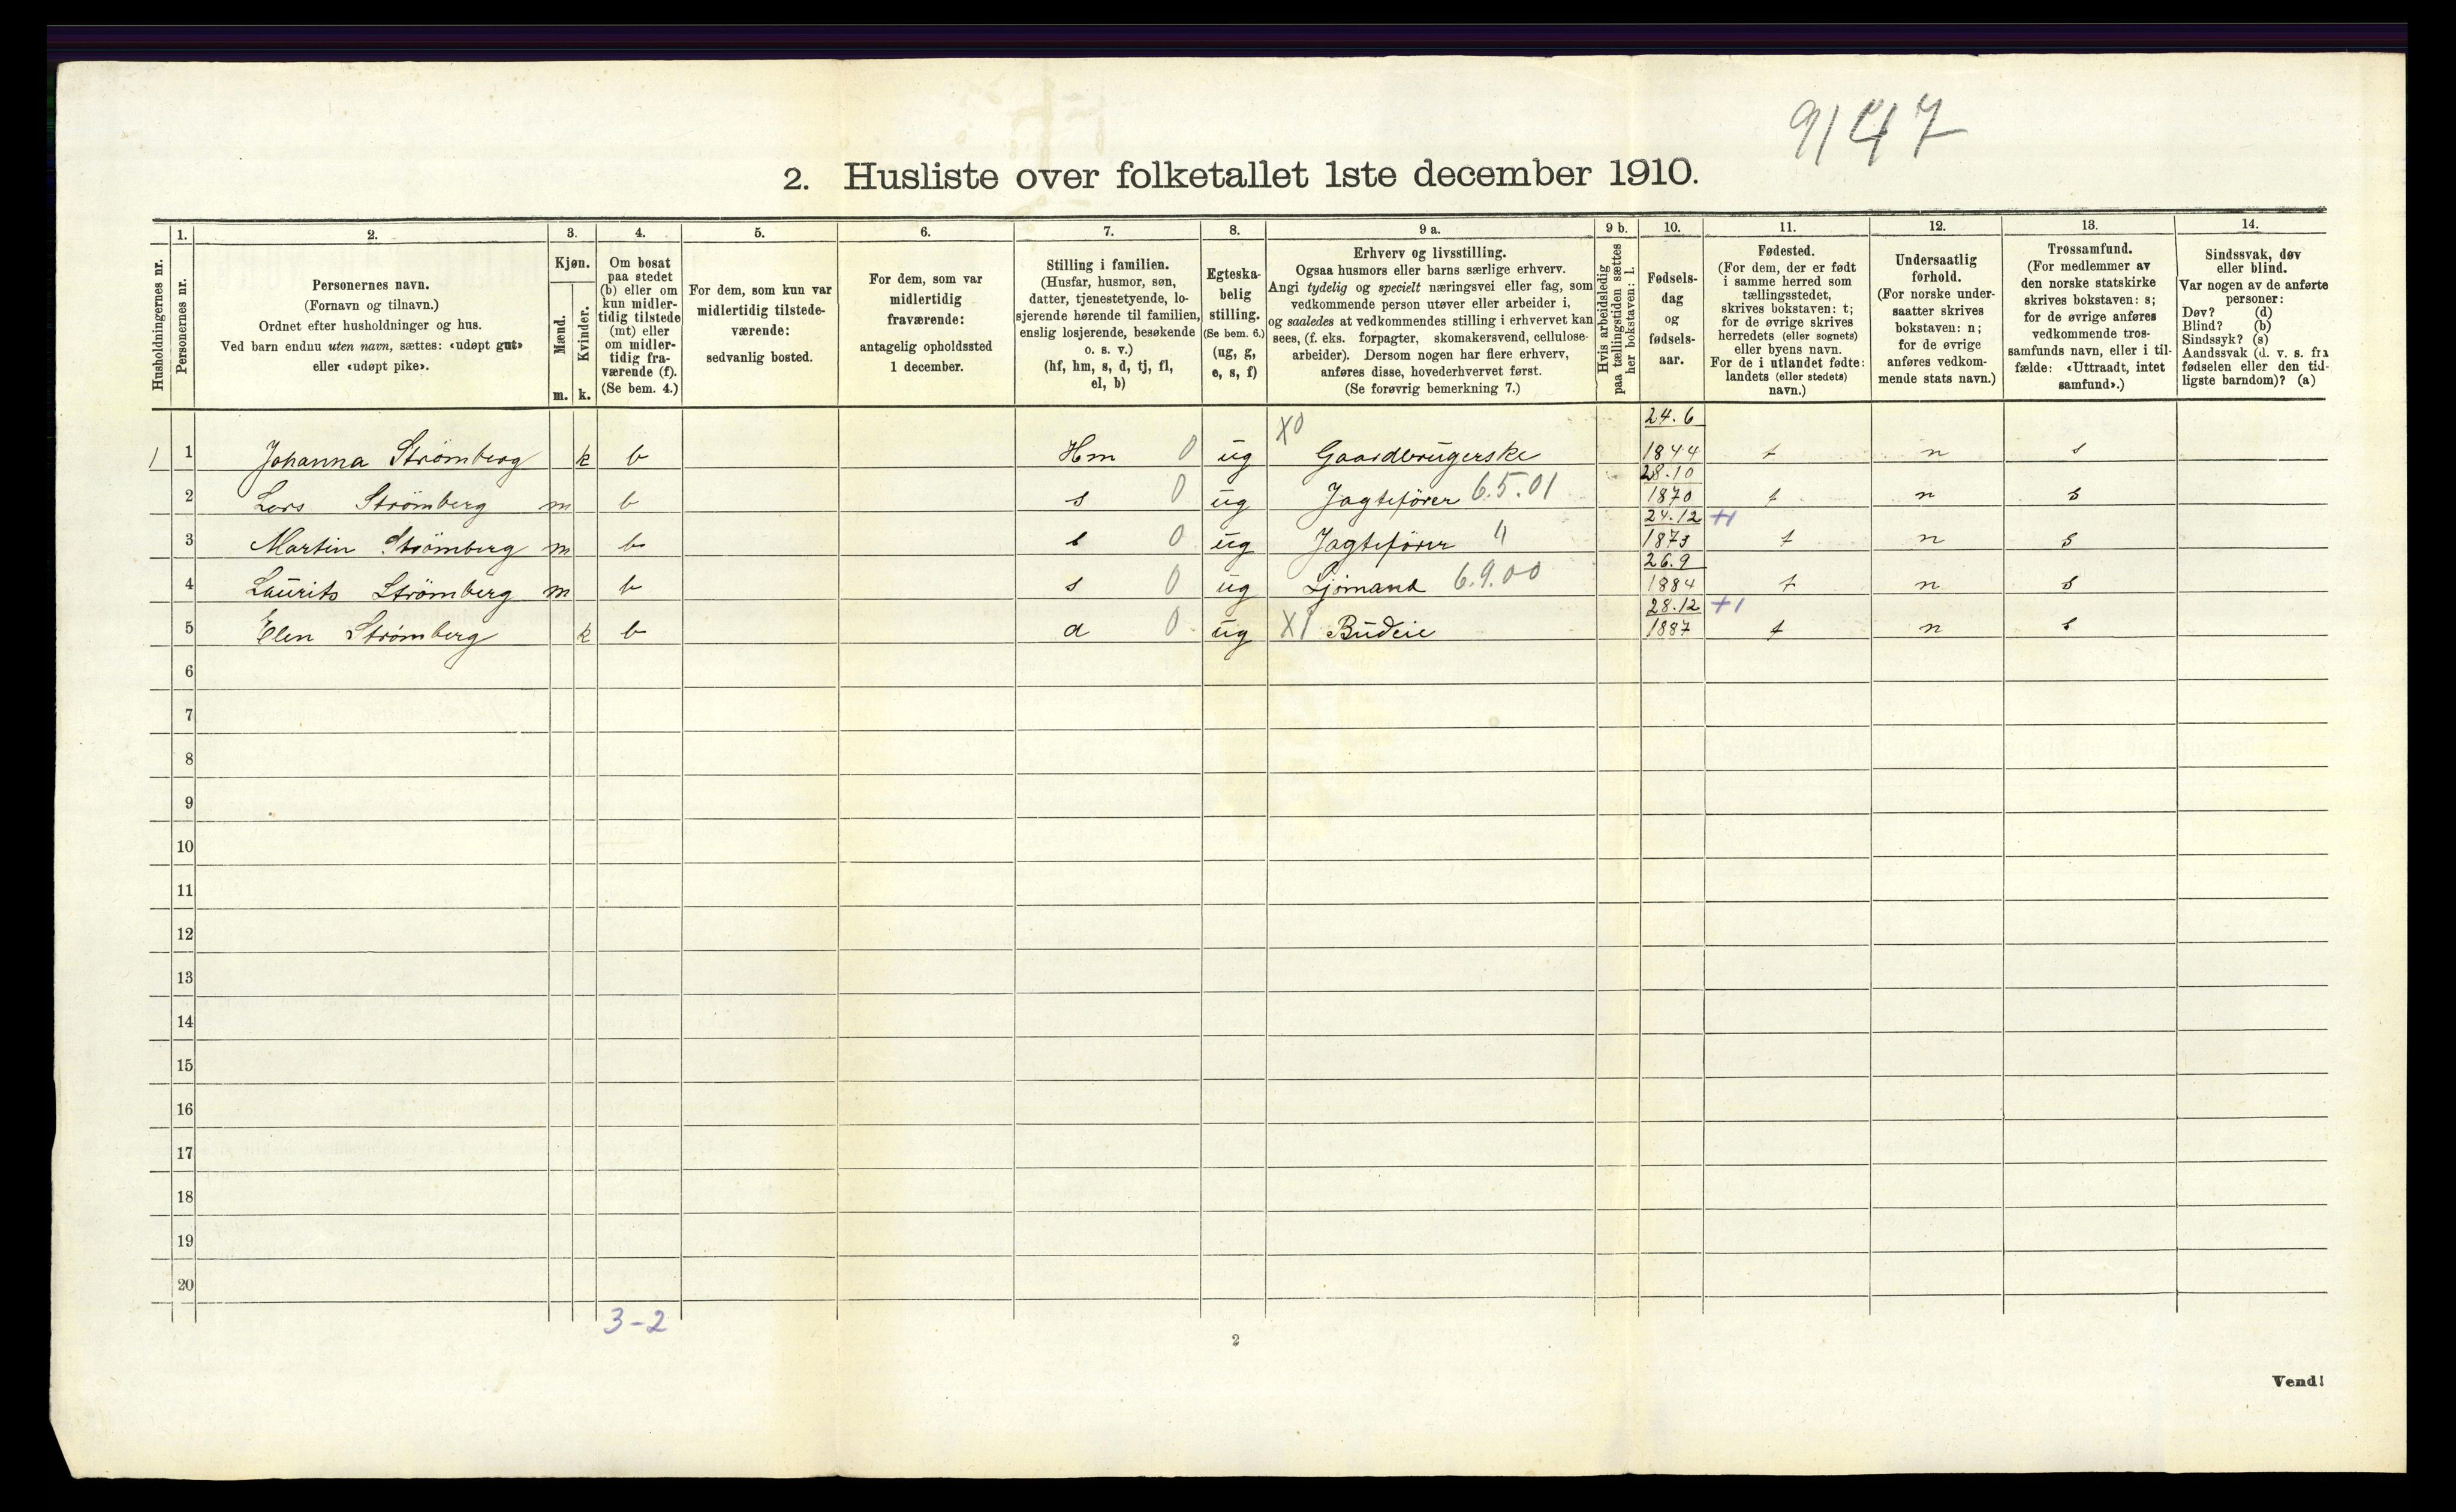 9147
2. Husliste over folketallet 1ste december 1910.
Husholdningernes nr.
1.
Personernes nr.
2.
Personernes navn.
(Fornavn og tilnavn.)
Ordnet efter husholdninger og hus.
Ved barn endnu uten navn, sættes: «udøpt gut»
eller «udøpt pike».
3.
Kjøn.
Mænd.
Kvinder.
m. k.
4.
Om bosat
paa stedet
(b) eller om
kun midler-
tidig tilstede
(mt) eller
om midler-
tidig fra-
værende (f).
(Se bem. 4.)
5.
For dem, som kun var
midlertidig tilstede-
værende:
sedvanlig bosted.
6.
For dem, som var
midlertidig
fraværende:
antagelig opholdssted
1 december.
7.
Stilling i familien.
(Husfar, husmor, søn,
datter, tjenestetyende, lo-
sjerende hørende til familien,
enslig losjerende, besøkende
o. s. v.)
(hf, hm, s, d, tj, fl,
el, b)
8.
Egteska-
belig
stilling.
(Se bem. 6.)
(ug, g,
e, s, f)
9 a.
Erhverv og livsstilling.
Ogsaa husmors eller barns særlige erhverv.
Angi tydelig og specielt næringsvei eller fag, som
vedkommende person utøver eller arbeider i,
og saaledes at vedkommendes stilling i erhvervet kan
sees, (f. eks. forpagter, skomakersvend, cellulose-
arbeider). Dersom nogen har flere erhverv,
anføres disse, hovederhvervet først.
(Se forøvrig bemerkning 7.)
9 b.
Hvis arbeidsledig
paa tællingstiden sættes
her bokstaven: l.
10.
Fødsels-
dag
og
fødsels-
aar.
11.
Fødested.
(For dem, der er født
i samme herred som
tællingsstedet,
skrives bokstaven: t;
for de øvrige skrives
herredets (eller sognets)
eller byens navn.
For de i utlandet fødte:
landets (eller stedets)
navn.)
12.
Undersaatlig
forhold.
(For norske under-
saatter skrives
bokstaven: n;
for de øvrige
anføres vedkom-
mende stats navn.)
13.
Trossamfund.
(For medlemmer av
den norske statskirke
skrives bokstaven: s;
for de øvrige anføres
vedkommende tros-
samfunds navn, eller i til-
fælde: «Uttraadt, intet
samfund».)
14.
Sindssvak, døv
eller blind.
Var nogen av de anførte
personer:
Døv? (d)
Blind? (b)
Sindssyk? (s)
Aandssvak (d. v. s. fra
fødselen eller den tid-
ligste barndom)? (a)
X0 24.6
1 1 Johanna Strømberg k b Hm 0 ug Gaardbrugerske 1844 t n s
28.10
2 Lars Strømberg m b s 0 ug Jagtefører 6.5.01 1870 t n s
24.12 +1
3 Martin Strømberg m b s 0 ug Jagtefører 4 1873 t n s
26.9
4 Laurits Strømberg m b s 0 ug Sjömand 6.9.00 1884 t n s
28.12 +1
5 Elen Strømberg k b d 0 ug X1 Budeie 1887 t n s
6
7
8
9
10
11
12
13
14
15
16
17
18
19
20
3-2
2
Vend!